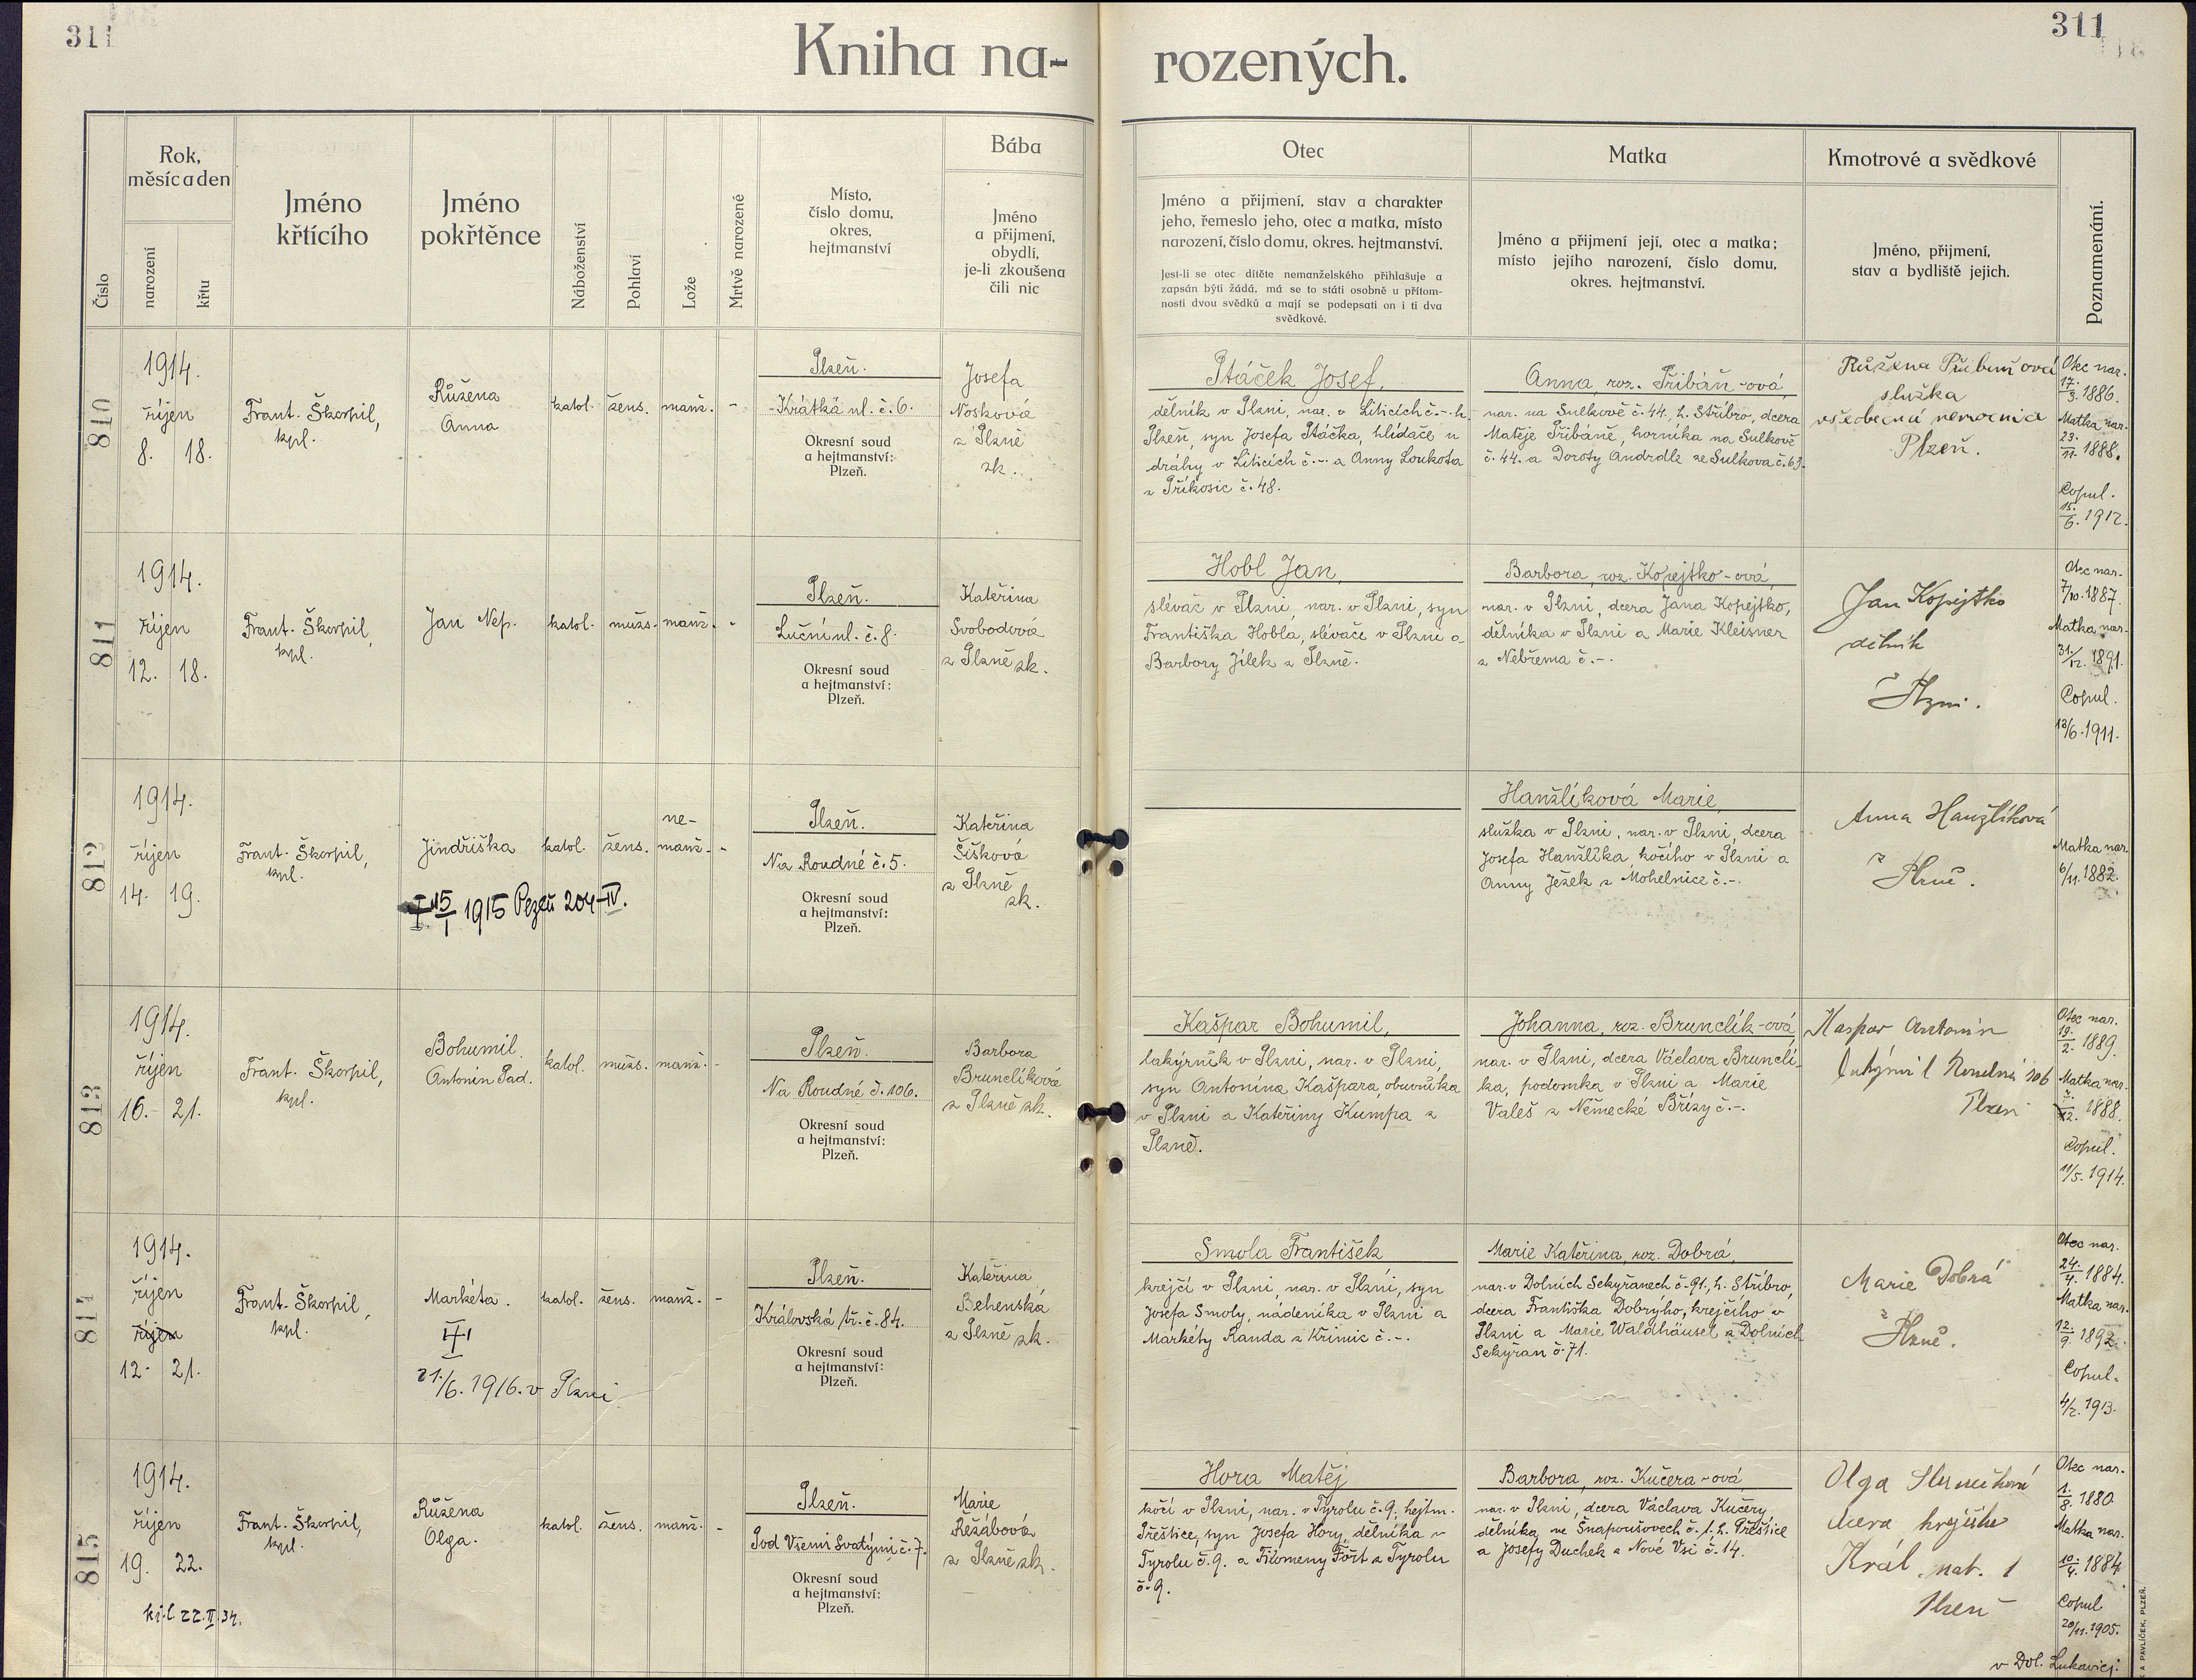 311
311
Kniha na-
rozených.
Číslo
Rok,
měsíc a den
narození
křtu
Jméno
křtícího
Jméno
pokřtěnce
Náboženství
Pohlaví
Lože
Mrtvě narozené
Místo,
číslo domu,
okres,
hejtmanství
Bába
Jméno
a přijmení,
obydlí,
je-li zkoušena
čili nic
Otec
Jméno a přijmení, stav a charakter
jeho, řemeslo jeho, otec a matka, místo
narození, číslo domu, okres. hejtmanství.
Jest-li se otec dítěte nemanželského přihlašuje a
zapsán býti žádá, má se to státi osobně u přítom-
nosti dvou svědků a mají se podepsati on i ti dva
svědkové.
Matka
Jméno a přijmení její, otec a matka;
místo jejího narození, číslo domu,
okres. hejtmanství.
Kmotrové a svědkové
Jméno, přijmení,
stav a bydliště jejich.
Poznamenání.
810
1914.
říjen
8. 18.
Frant. Škorpil,
kpl.
Růžena
Anna
katol.
žens.
manž.
-
Plzeň.
Krátká ul. č. 6.
Okresní soud
a hejtmanství:
Plzeň.
Josefa
Nosková
z Plzně
zk.
Ptáček Josef,
dělník v Plzni, nar. v Liticích č.-. h.
Plzeň, syn Josefa Ptáčka, hlídače u
dráhy v Liticích č.-. a Anny Loukota
z Příkosic č. 48.
Anna, roz. Přibáň-ová,
nar. na Sulkově č. 44. h. Stříbro, dcera
Matěje Přibáně, horníka na Sulkově
č. 44. a Doroty Andrdle ze Sulkova č. 63.
služka
všeobecná nemocnice
Plzeň.
Otec nar.
17./3. 1886.
Matka nar.
23./11. 1888.
Copul.
15./6. 1912.
811
1914.
říjen
12. 18.
Frant. Škorpil,
kpl.
Jan Nep.
katol.
mužs.
manž.
-
Plzeň.
Luční ul. č. 8.
Okresní soud
a hejtmanství:
Plzeň.
Kateřina
Svobodová
z Plzně zk.
Hobl Jan,
slévač v Plzni, nar. v Plzni, syn
Františka Hobla, slévače v Plzni a
Barbory Jílek z Plzně.
Barbora, roz. Kopejtko-ová,
nar. v Plzni, dcera Jana Kopejtko,
dělníka v Plzni a Marie Kleisner
z Nebřema č.-.
Jan Kopejtko
dělník
v Plzni.
Otec nar.
7/10. 1887.
Matka nar.
31./12. 1891.
Copul.
13/6. 1911.
812
1914.
říjen
14. 19.
Frant. Škorpil,
kpl.
Jindřiška
katol.
žens.
ne-
manž.
-
15/I 1915 Plzeň 204-IV.
Plzeň.
Na Roudné č. 5.
Okresní soud
a hejtmanství:
Plzeň.
Kateřina
Šišková
z Plzně
zk.
Hanžlíková Marie,
služka v Plzni, nar. v Plzni, dcera
Josefa Hanžlíka, kočího v Plzni a
Anny Ježek z Mohelnice č.-.
Anna Hanžlíková
z Plzně.
Matka nar.
6/11. 1882.
813
1914.
říjen
16. 21.
Frant. Škorpil,
kpl.
Bohumil
Antonín Pad.
katol.
mužs.
manž.
-
Plzeň.
Na Roudné č. 106.
Okresní soud
a hejtmanství:
Plzeň.
Barbora
Brunclíková
z Plzně zk.
Kašpar Bohumil,
lakýrník v Plzni, nar. v Plzni,
syn Antonína Kašpara, obuvníka
v Plzni a Kateřiny Kumpa z
Plzně.
Johanna, roz. Brunclík-ová,
nar. v Plzni, dcera Václava Brunclí-
ka, podomka v Plzni a Marie
Valeš z Německé Břízy č.-.
Kaspar Antonín
Roudná 106
Plzeň
Otec nar.
19./2. 1889.
Matka nar.
1888.
Copul.
11/5. 1914.
814
1914.
říjen
říjen
12. 21.
Frant. Škorpil,
kpl.
Markéta.
katol.
žens.
manž.
-
21./6. 1916. v Plzni
Plzeň.
Královská tř. č. 84.
Okresní soud
a hejtmanství:
Plzeň.
Kateřina
Behenská
z Plzně zk.
Smola František
krejčí v Plzni, nar. v Plzni, syn
Josefa Smoly, nádeníka v Plzni a
Markéty Randa z Křimic č.-.
Marie Kateřina, roz. Dobrá,
nar. v Dolních Sekyřanech č. 91, h. Stříbro,
dcera Františka Dobrýho, krejčího v
Plzni a Marie Waldhäusel z Dolních
Sekyřan č. 71.
Marie Dobrá
z Plzně.
Otec nar.
24./4. 1884.
Matka nar.
12./9. 1892.
Copul.
4/2. 1913.
815
1914.
říjen
19. 22.
Frant. Škorpil,
kpl.
Růžena
Olga.
katol.
žens.
manž.
-
Plzeň.
Pod Všemi Svatými č. 7.
Okresní soud
a hejtmanství:
Plzeň.
Marie
Řežábová
z Plzně zk.
Hora Matěj
kočí v Plzni, nar. v Tyrolu č. 9., hejtm.
Přeštice, syn Josefa Hory, dělníka v
Tyrolu č. 9. a Filomeny Fořt z Tyrolu
č. 9.
Barbora, roz. Kučera-ová,
nar. v Plzni, dcera Václava Kučery,
dělníka ve Šnapoušovech č. 1. h. Přeštice
a Josefy Duchek z Nové Vsi č. 14.
Olga
dcera krejčího
Král. nab. 1
Plzeň
Otec nar.
1./8. 1880
Matka nar.
10./4. 1884
Copul
20/11. 1905.
v Dol. Lukavici.
22.II.34.
K A PAVLÍČEK, PLZEŇ.